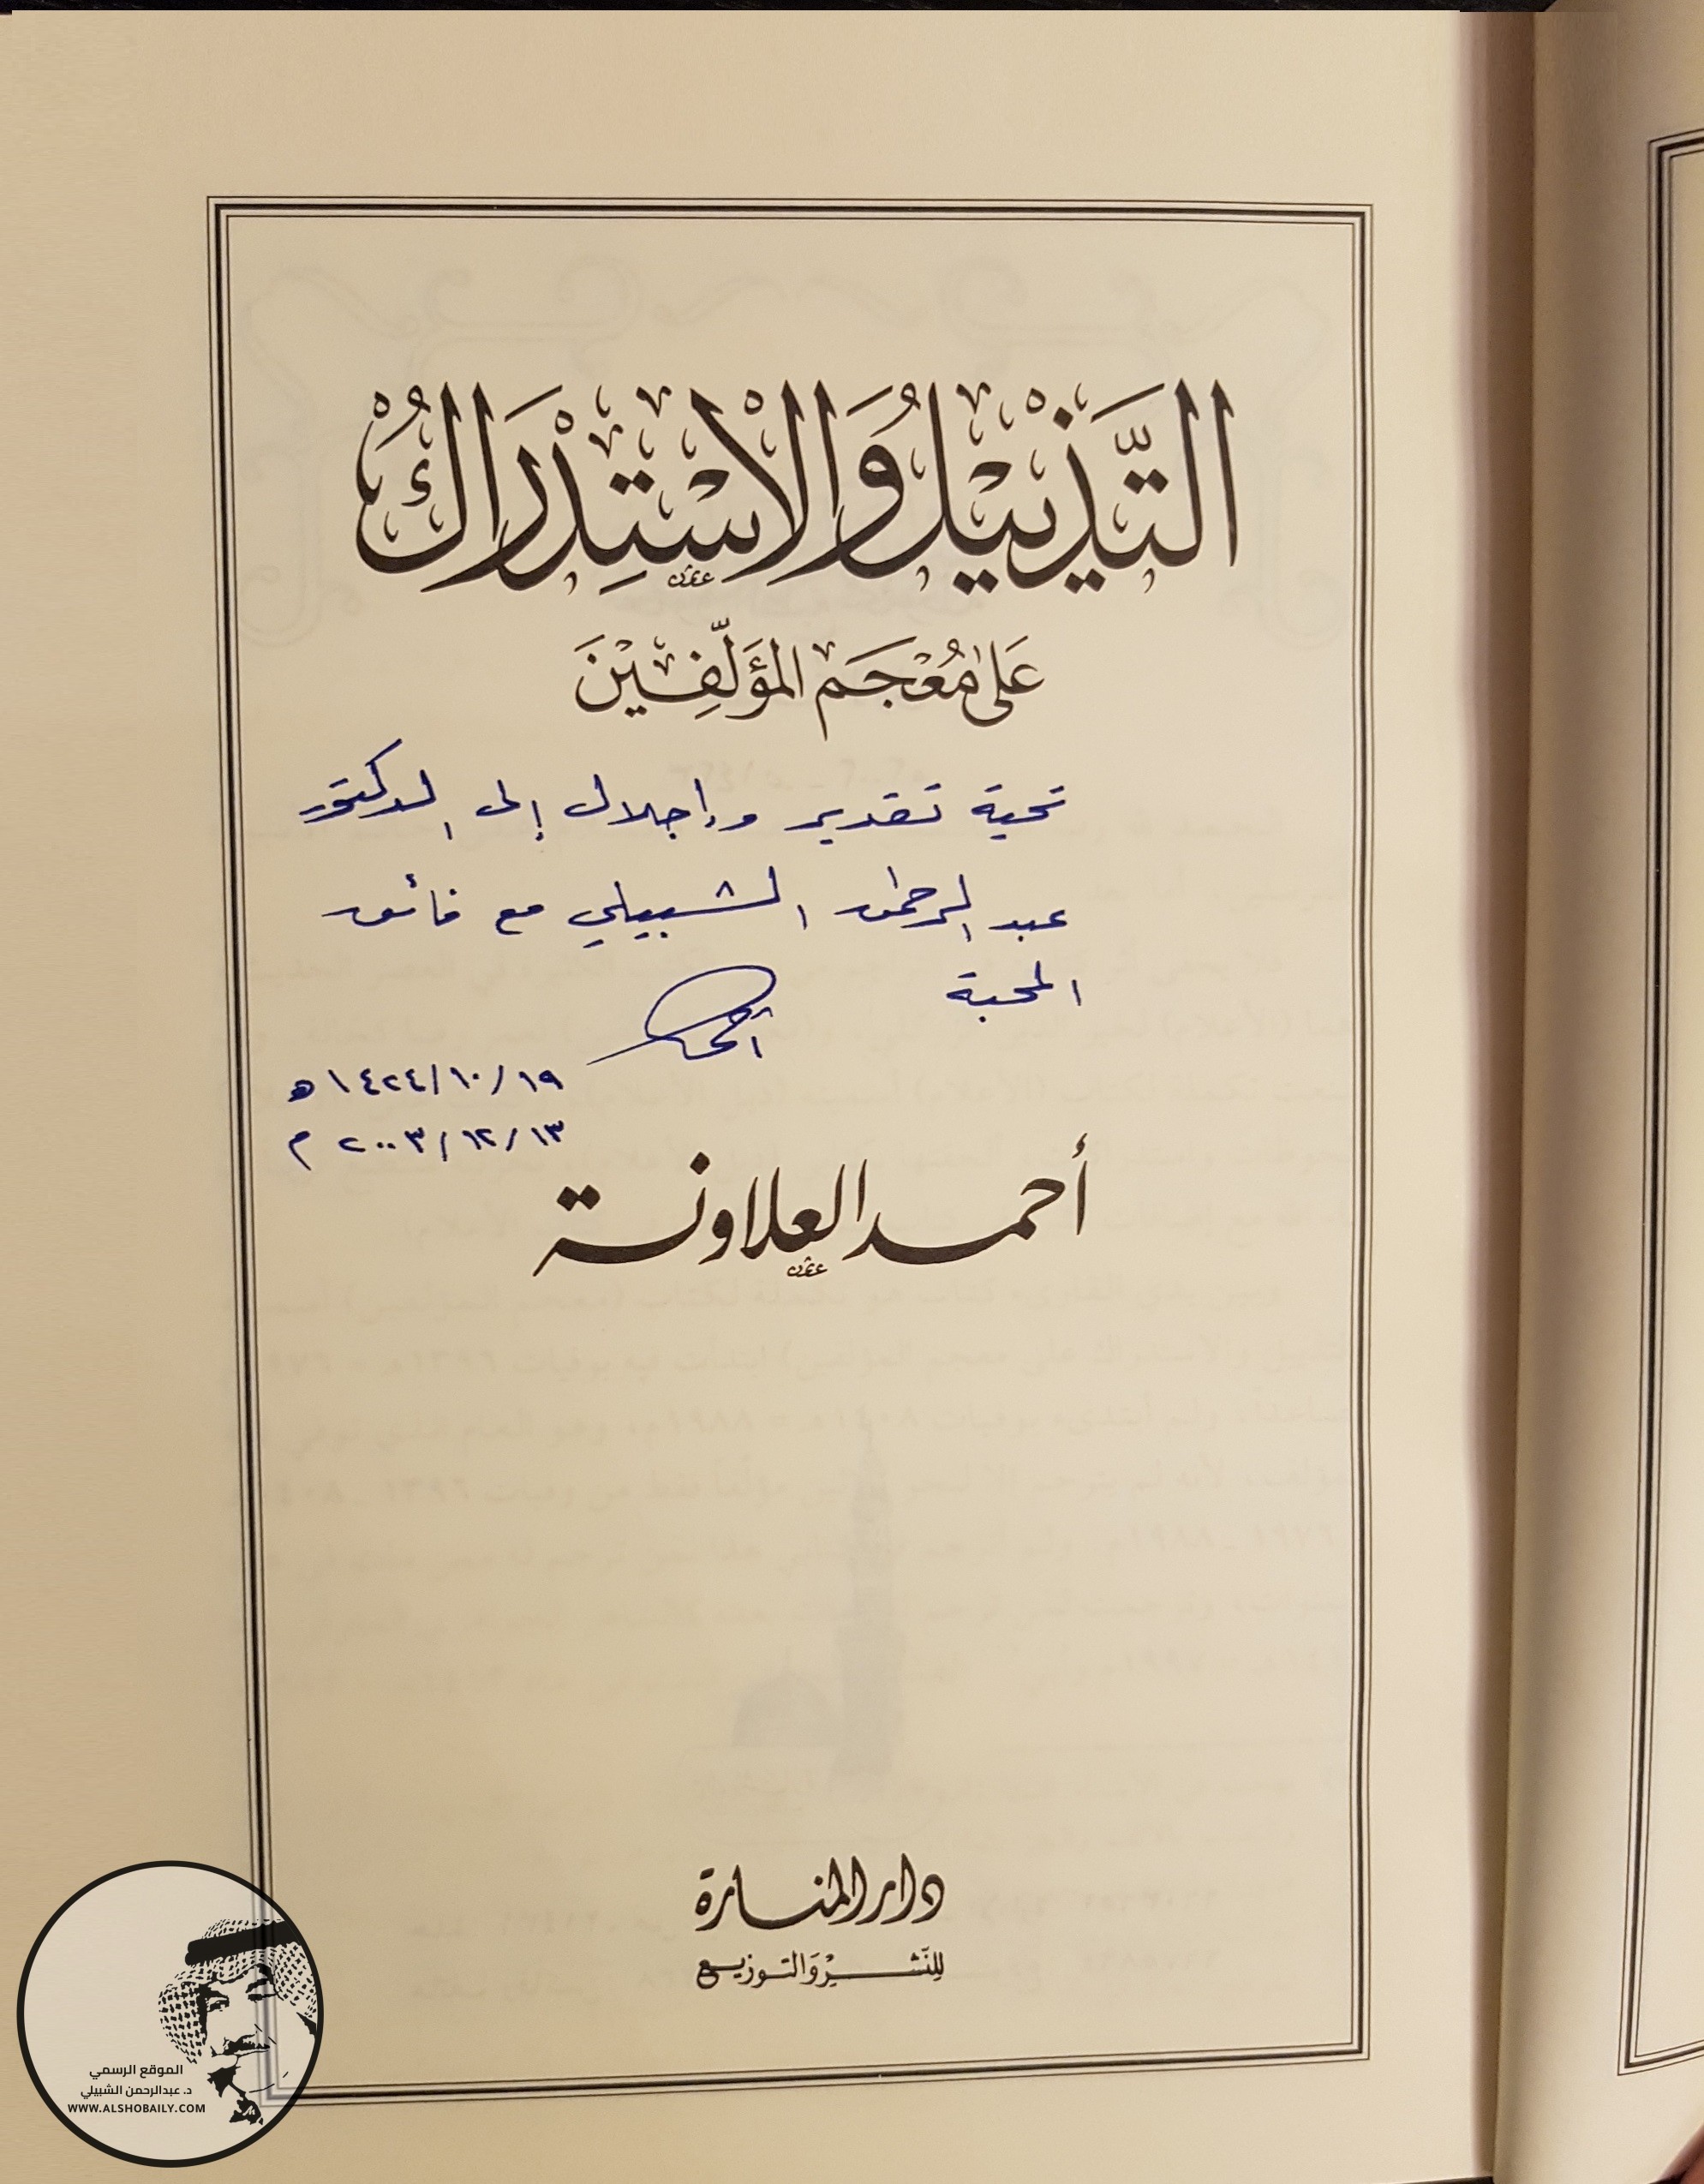 التَّذْيِيلُ وَالِاسْتِدْرَاكُ
عَلَى مُعْجَم المُؤَلِّفِيْنَ
تحية تقدير وإجلال إلى الدكتور
عبد الرحمن الشبيلي مع فائق
المحبة
أحمد
١٤٢٤/١٠/١٩ هـ
٢٠٠٣/١٢/١٣ م
أحمد العلاونة
دار المنارة
لِلنَّشْرِ وَالتَّوزيع
الموقع الرسمي
د. عبدالرحمن الشبيلي
WWW.ALSHOBAILY.COM